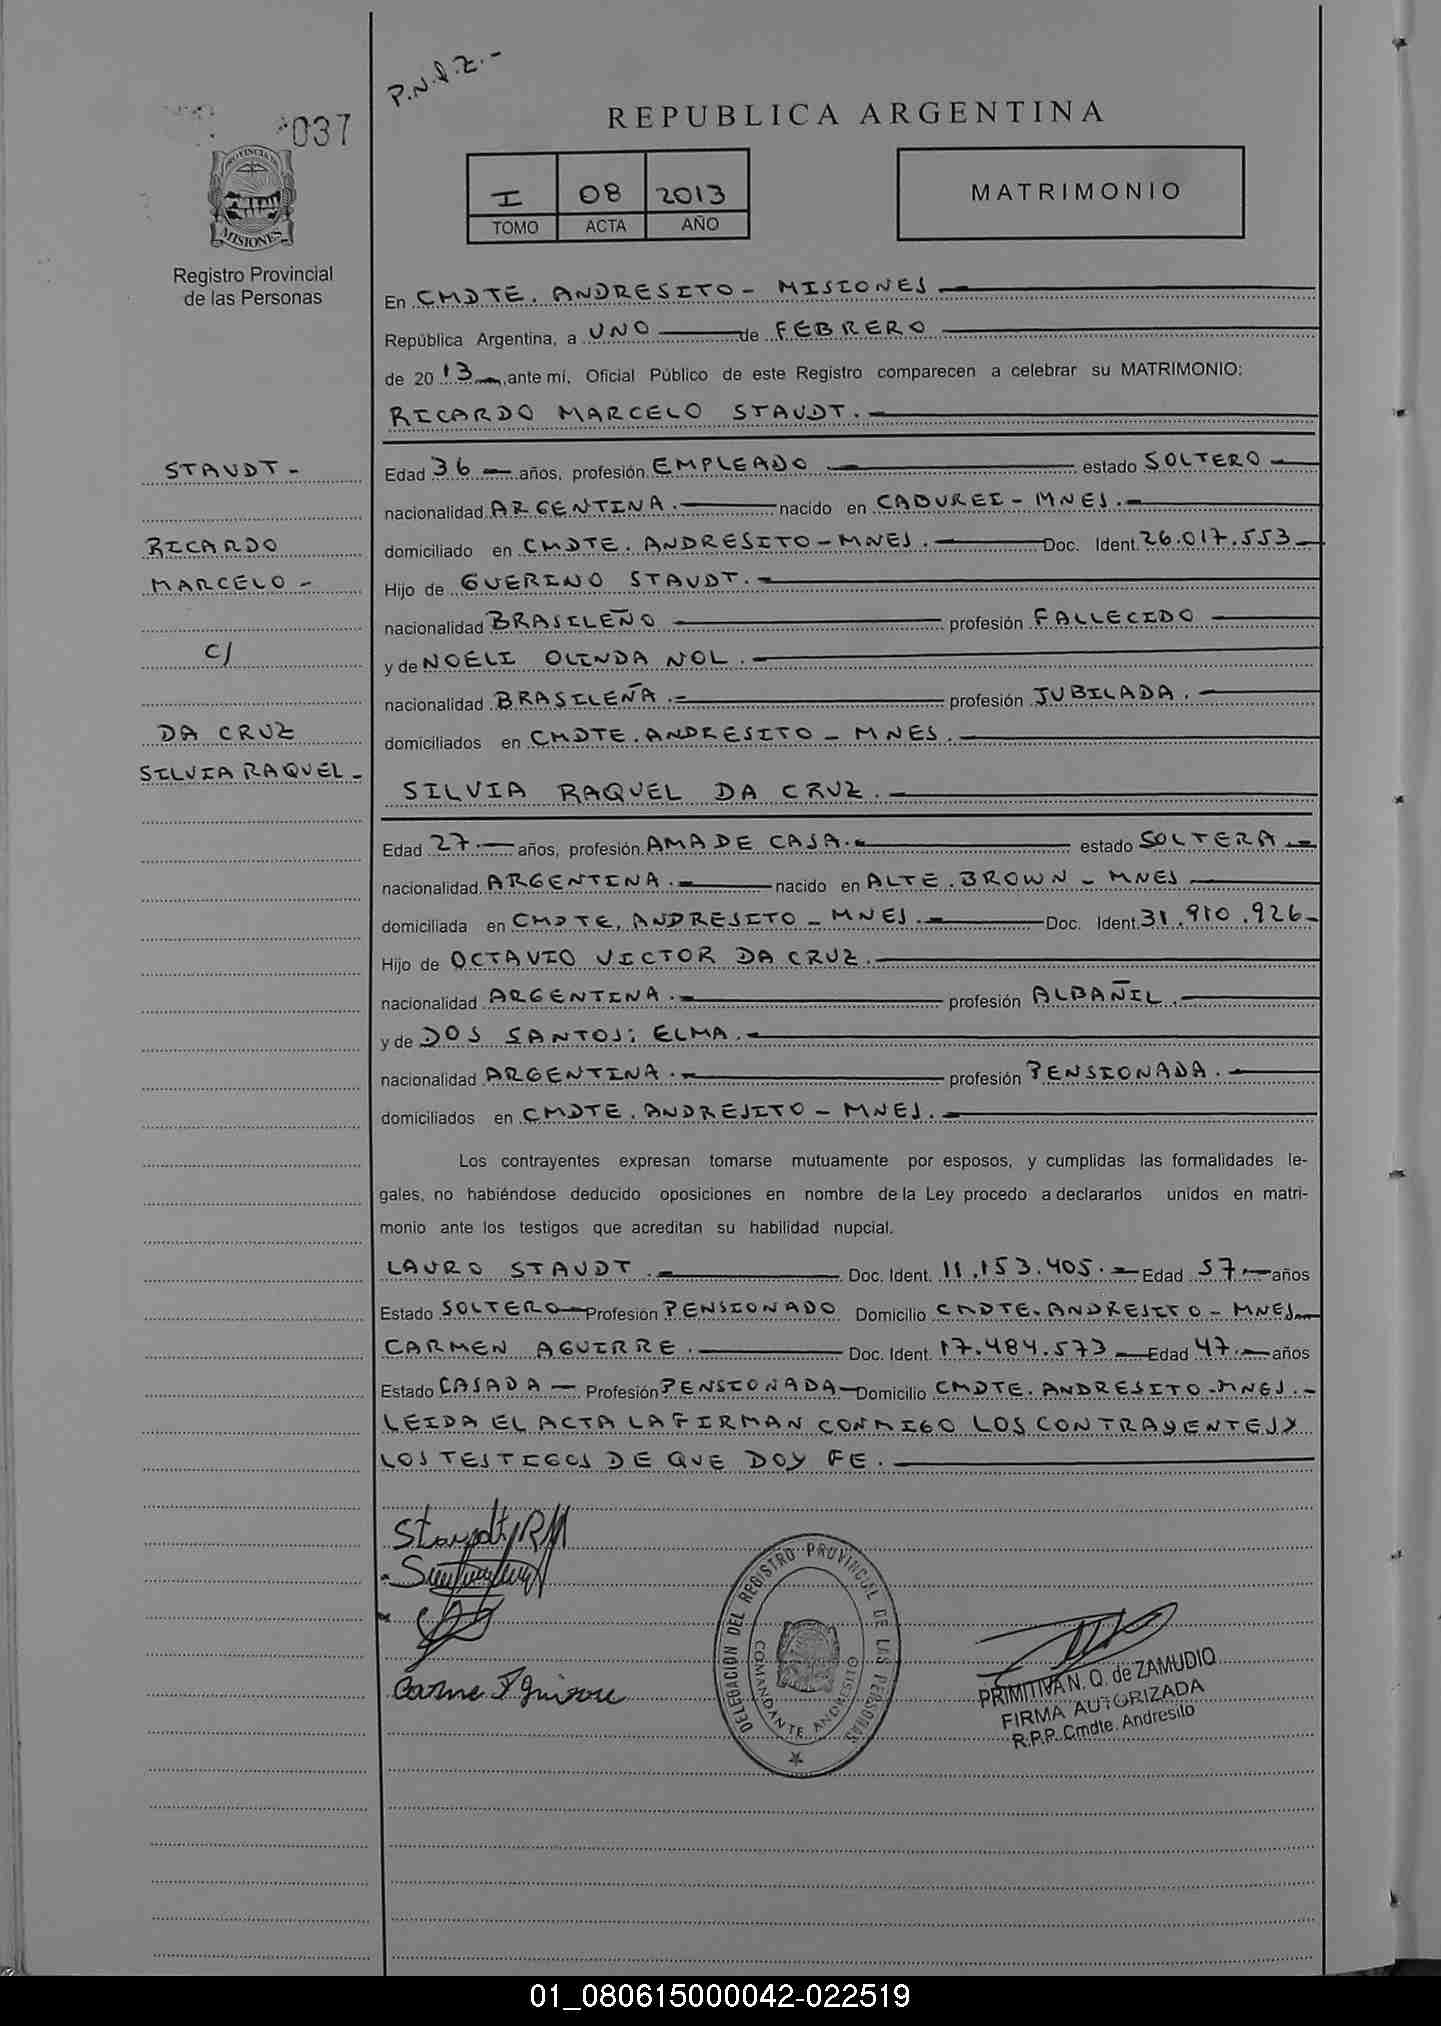 P.N.I.Z.-
037
REPUBLICA ARGENTINA
I 08 2013
TOMO ACTA AÑO
MATRIMONIO
PROVINCIA DE
MISIONES
Registro Provincial
de las Personas
En CMDTE. ANDRESITO - MISIONES
República Argentina, a UNO de FEBRERO
de 2013, ante mí, Oficial Público de este Registro comparecen a celebrar su MATRIMONIO:
RICARDO MARCELO STAUDT.
STAUDT -
RICARDO
MARCELO -
C/
DA CRUZ
SILVIA RAQUEL -
Edad 36 años, profesión EMPLEADO estado SOLTERO
nacionalidad ARGENTINA. nacido en CAPUREI - MNES.
domiciliado en CMDTE. ANDRESITO - MNES. Doc. Ident. 26.017.553
Hijo de GUERINO STAUDT.
nacionalidad BRASILEÑO profesión FALLECIDO
y de NOELI OLINDA NOL.
nacionalidad BRASILEÑA. profesión JUBILADA.
domiciliados en CMDTE. ANDRESITO - MNES.
SILVIA RAQUEL DA CRUZ.
Edad 27. años, profesión AMA DE CASA. estado SOLTERA.
nacionalidad ARGENTINA. nacido en ALTE. BROWN - MNES
domiciliada en CMDTE. ANDRESITO - MNES. Doc. Ident. 31.910.926
Hijo de OCTAVIO VICTOR DA CRUZ.
nacionalidad ARGENTINA. profesión ALBAÑIL.
y de DOS SANTOS; ELMA.
nacionalidad ARGENTINA. profesión PENSIONADA.
domiciliados en CMDTE. ANDRESITO - MNES.
Los contrayentes expresan tomarse mutuamente por esposos, y cumplidas las formalidades le-
gales, no habiéndose deducido oposiciones en nombre de la Ley procedo a declararlos unidos en matri-
monio ante los testigos que acreditan su habilidad nupcial.
LAURO STAUDT. Doc. Ident. 11.153.405. Edad 57. años
Estado SOLTERO Profesión PENSIONADO Domicilio CMDTE. ANDRESITO - MNES
CARMEN AGUIRRE. Doc. Ident. 17.484.573 Edad 47. años
Estado CASADA Profesión PENSIONADA Domicilio CMDTE. ANDRESITO - MNES.
LEIDA EL ACTA LA FIRMAN CONMIGO LOS CONTRAYENTES Y
LOS TESTIGOS DE QUE DOY FE.
Staudt RM
Carme Aguirre
DELEGACION DEL REGISTRO PROVINCIAL DE LAS PERSONAS
COMANDANTE ANDRESITO
PRIMITIVA N. Q. de ZAMUDIO
FIRMA AUTORIZADA
R.P.P. Cmdte. Andresito
01_080615000042-022519